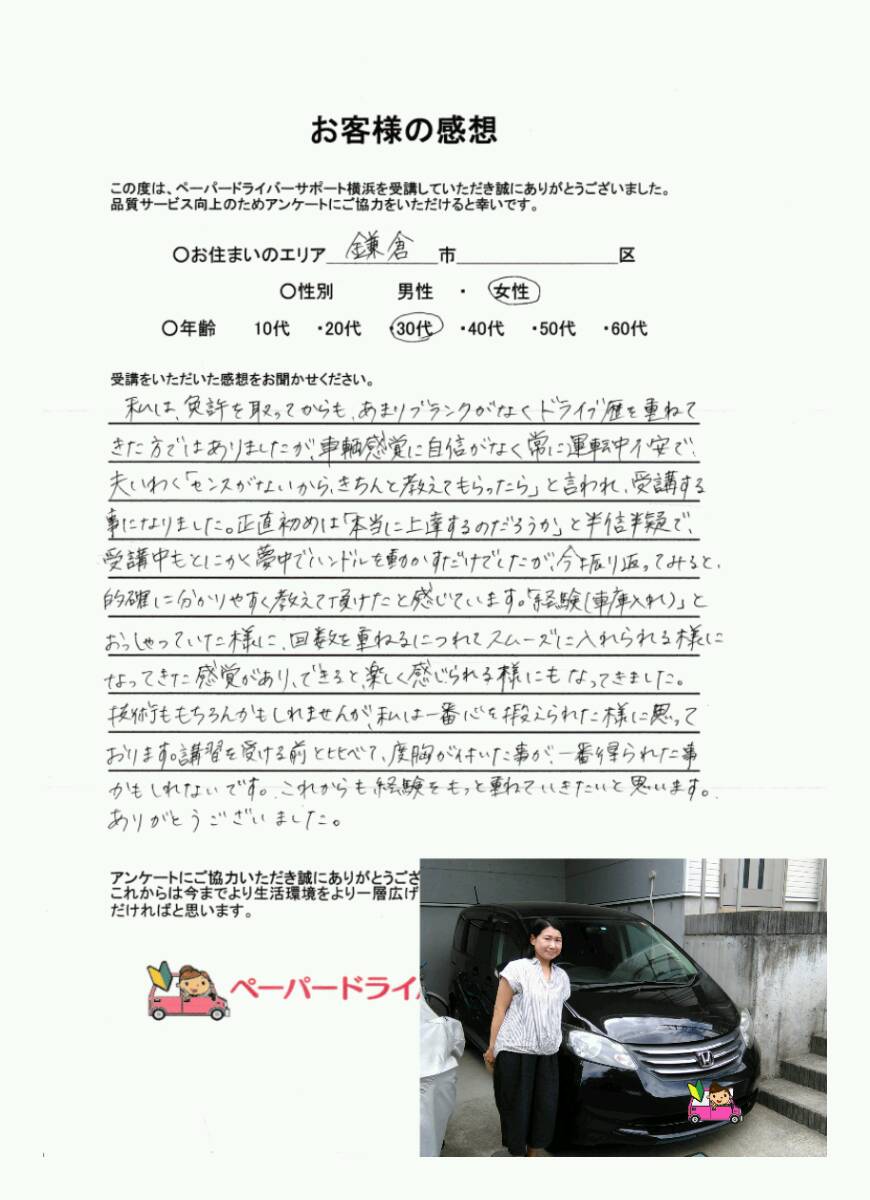 お客様の感想
この度は、ペーパードライバーサポート横浜を受講していただき誠にありがとうございました。
品質サービス向上のためアンケートにご協力をいただけると幸いです。
〇お住まいのエリア 鎌倉 市 区
〇性別 男性 ・ 女性
〇年齢 10代 ・20代 ・30代 ・40代 ・50代 ・60代
受講をいただいた感想をお聞かせください。
私は、免許を取ってからも、あまりブランクがなくドライブ歴を重ねて
きた方ではありましたが、車輌感覚に自信がなく常に運転中不安で、
夫いわく「センスがないから、きちんと教えてもらったら」と言われ、受講する
事になりました。正直初めは「本当に上達するのだろうか」と半信半疑で、
受講中もとにかく夢中でハンドルを動かすだけでしたが、今振り返ってみると、
的確に分かりやすく教えて頂けたと感じています。「経験(車庫入れ)」と
おっしゃっていた様に、回数を重ねるにつれてスムーズに入れられる様に
なってきた感覚があり、できると、楽しく感じられる様にもなってきました。
技術ももちろんかもしれませんが、私は一番心を鍛えられた様に思って
おります。講習を受ける前と比べて、度胸が付いた事が、一番得られた事
かもしれないです。これからも経験をもっと重ねていきたいと思います。
ありがとうございました。
アンケートにご協力いただき誠にありがとうござ
これからは今までより生活環境をより一層広げ
だければと思います。
ペーパードライ